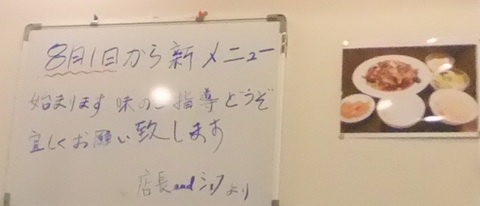 8月1日から新メニュー
始まります 味のご指導どうぞ
宜しくお願い致します
店長andシェフより